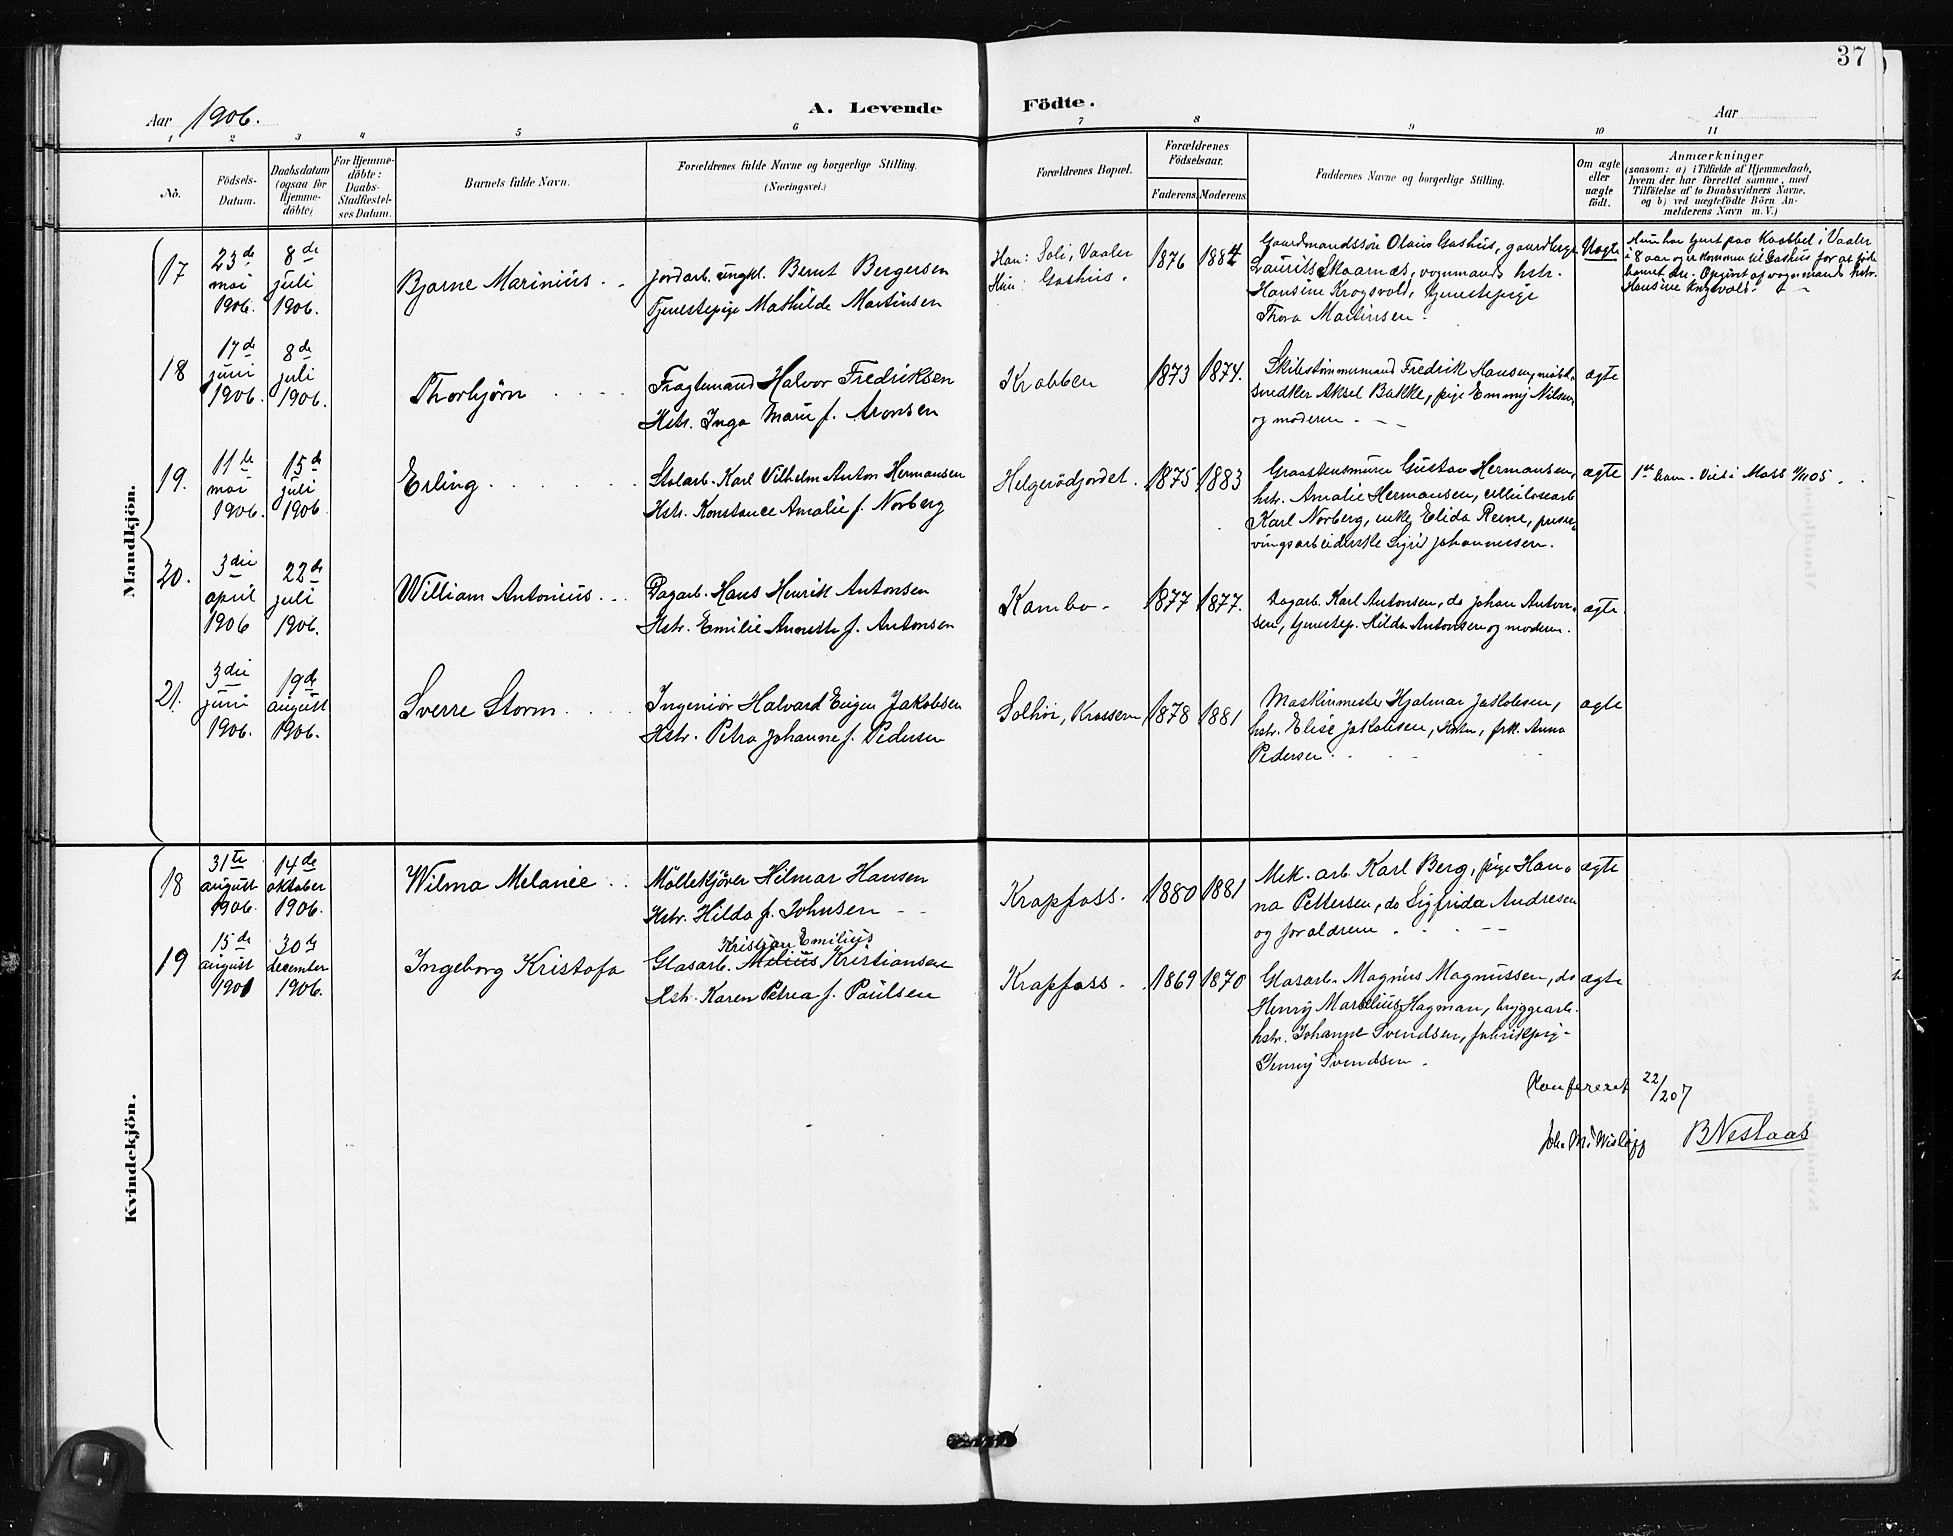 37
Aar 1906.
A. Levende Födte.
Aar
1 2 3 4 5 6 7 8 9 10 11
No.
Födsels-Datum.
Daabsdatum (ogsaa for Hjemme-döbte)
For Hjemme-döbte: Daabs-Stadfæstel-ses Datum.
Barnets fulde Navn.
Forældrenes fulde Navne og borgerlige Stilling.
(Næringsvei.)
Forældrenes Bopæl.
Forældrenes Födselsaar.
Faderens Moderens
Faddernes Navne og borgerlige Stilling.
Om ægte eller uægte födt.
Anmærkninger
(saasom: a) i Tilfælde af Hjemmedaab,
hvem der har forrettet samme, med
Tilföielse af to Daabsvidners Navne,
og b) ved uægtefödte Börn An-
melderens Navn m. V.)
Mandkjön.
17
23de mai 1906.
8de juli 1906.
Bjarne Marinius
Jordarb. ungkl. Bernt Bergersen
Tjenestepige Mathilde Martinsen
Han: Soli, Vaaler
Hun: Gashus.
1876 1884
Gaardmandssön Olaus Gashus, gaardbruger
Laurits Skaarnæs, vognmands hstr.
Hansine Krogsvold, tjenestepige
Thora Martinsen.
Uægte
Hun har tjent paa Kabbel i Vaaler
i 8 aar og er kommen til Gashus for at föde
barnet der. Opgivet af vognmands hstr.
Hansine Krogsvold.
18
17de juni 1906.
8de juli 1906.
Thorbjørn
Fragtemand Halvor Fredriksen
Hstr. Inga Marie f. Aronsen
Krabben
1873 1874.
Skibstömmermand Fredrik Hansen, möbel-
snedker Aksel Bakke, pige Emmy Nilsen
og moderen
ægte
19.
11te mai 1906.
15de juli 1906
Erling
Stolarb. Karl Vilhelm Anton Hermansen
Hstr. Konstance Amalie f. Norberg
Helgerödjordet.
1875 1883
Graastensmurer Gustav Hermansen,
hstr. Amalie Hermansen, cellulosearb
Karl Norberg, enke Elida Reine, preser-
vingsarbeiderske Sigrid Johannesen.
ægte
1ste barn. Viet i Moss
20.
3die april 1906
22de juli 1906.
William Antonius
Dagarb. Hans Henrik Antonsen
Hstr. Emilie Annette f. Antonsen
Kambo
1877 1877.
Dagarb. Karl Antonsen, do Johan Anton-
sen, tjenestep. Hilda Antonsen og moderen.
ægte
21.
3die juni 1906.
19de august 1906.
Sverre Storm
Ingeniör Halvard Eugen Jakobsen
Hstr. Petra Johanne f. Pedersen
Solhöi, Krossern
1878 1881
Maskinmester Hjalmar Jakobsen,
hstr. Elise Jakobsen, frk. Anna
Pedersen
ægte
Kvindekjön.
18
31te august 1906.
14de oktober 1906.
Wilma Melanie
Möllekjörer Hilmar Hansen
Hstr. Hilda f. Johnsen
Krapfoss.
1880 1881
Mek. arb Karl Berg, pige Han-
na Pettersen, do Sigfrida Andresen
og forældrene
ægte
19
15de august 1901
30te december 1906.
Ingeborg Kristofa
Kristian Emilius
Glasarb. Milius Kristiansen
Hstr. Karen Petrea f. Paulsen
Krapfoss
1869 1870
Glasarb. Magnus Magnussen, do
Henry Marcelius Hagman, bryggearb.
hstr. Johanne Svendsen, fabrikpige
Jenny Svendsen.
ægte
Konfereret 22/2 07
Joh. M. Wisløff B Nestaas